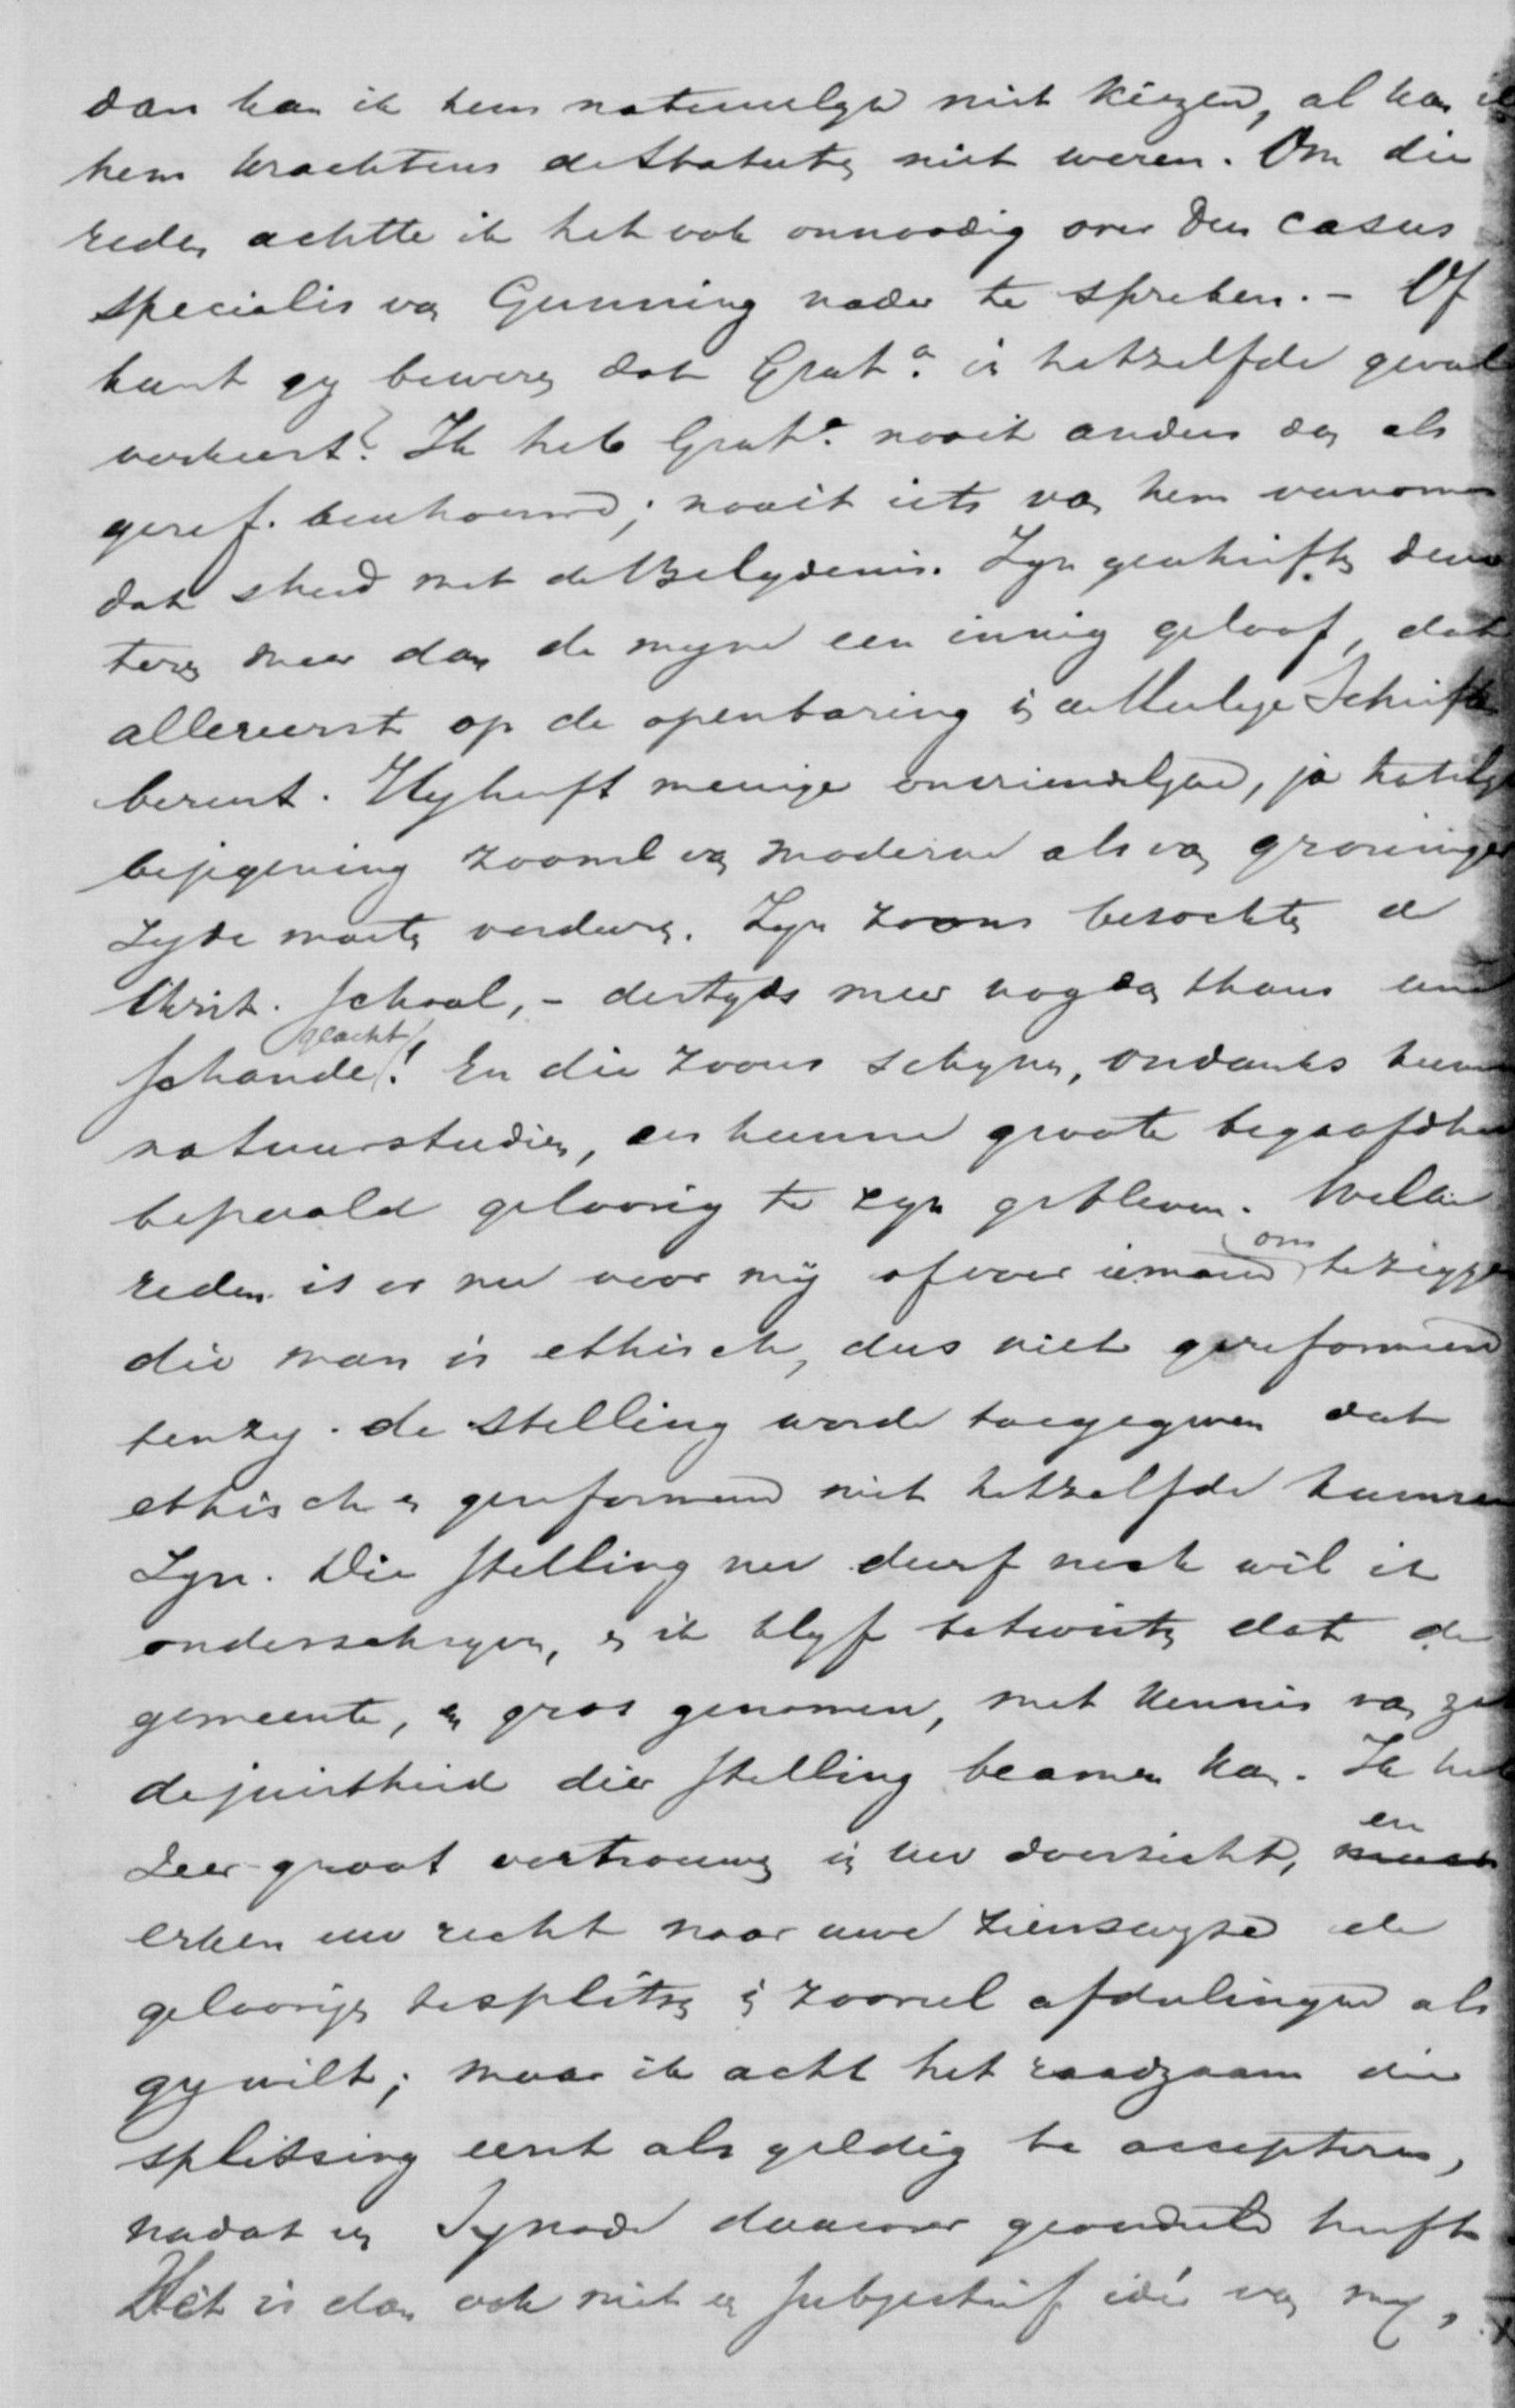 dan kan ik hem natuurlyk niet kiezen, al kan ik
hem krachtens de Statuten niet weren. Om die
reden achtte ik het ook onnoodig over den casus
specialis van Gunning nader te spreken. - Of
kunt gy beweren dat Grat.a in hetzelfde geval
verkeert? Ik heb Grat.a nooit anders dan als
geref. beschouwd; nooit iets van hem vernomen
dat streed met de Belydenis. Zyn geschriften
meer dan de myne een innig geloof, dat
allereerst op de openbaring in de Heilige Schrift
berust. Hy heeft menige onvriendelyke, ja hatelyke
bejegening zoowel van moderne als van groninger
zyde moeten verduren. Zyn zoons bezochten de
Christ. School, - destyds meer nog dan thans een
schande geacht! En die zoons schynen, ondanks hunne
natuurstudien, en hunne groote begaafdheid
bepaald geloovig te zyn gebleven. Welke
reden is er nu voor mij of voor iemand om te zeggen
die man is ethisch, dus niet gereformeerd
tenzy de stelling worde toegegeven dat
ethisch en gereformeerd niet hetzelfde kunnen
zyn. Die stelling nu durf noch wil ik
onderschryven, en ik blyf betwisten dat de
gemeente, en gros genomen, met kennis van zaken
de juistheid dier stelling beamen kan. Ik heb
zeer groot vertrouwen in uw doorzicht, en
erken uw recht naar uwe zienswyze de
geloovigen te splitsen in zooveel afdeelingen als
gy wilt; maar ik acht het raadzaam die
splitsing eerst als geldig te accepteren,
nadat een Synode daarover geoordeeld heeft.
Het is dan ook niet een subjectief idée van my,